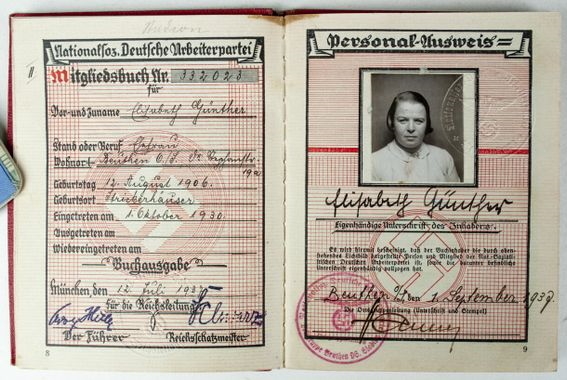 Nationalsoz. Deutsche Arbeiterpartei
Mitgliedsbuch Nr. 332023
für
Vor- und Zuname Elisabeth Günther
Stand oder Beruf
Wohnort Beuthen O/S.
19a
Geburtstag 12. August 1906.
Geburtsort
Eingetreten am 1. Oktober 1930.
Ausgetreten am
Wiedereingetreten am
Buchausgabe
München den 12. Juli 193
für die Reichsleitung
Der Führer Reichsschatzmeister
8
Personal-Ausweis
Elisabeth Günther
Eigenhändige Unterschrift des Inhabers.
Es wird hiermit bescheinigt, daß der Buchinhaber die durch oben-
stehendes Lichtbild dargestellte Person und Mitglied der Nat.-Soziali-
stischen Deutschen Arbeiterpartei ist, sowie die darunter befindliche
Unterschrift eigenhändig vollzogen hat.
Beuthen O/S, den 1. September 1937
Die Ortsgruppenleitung (Unterschrift und Stempel)
9